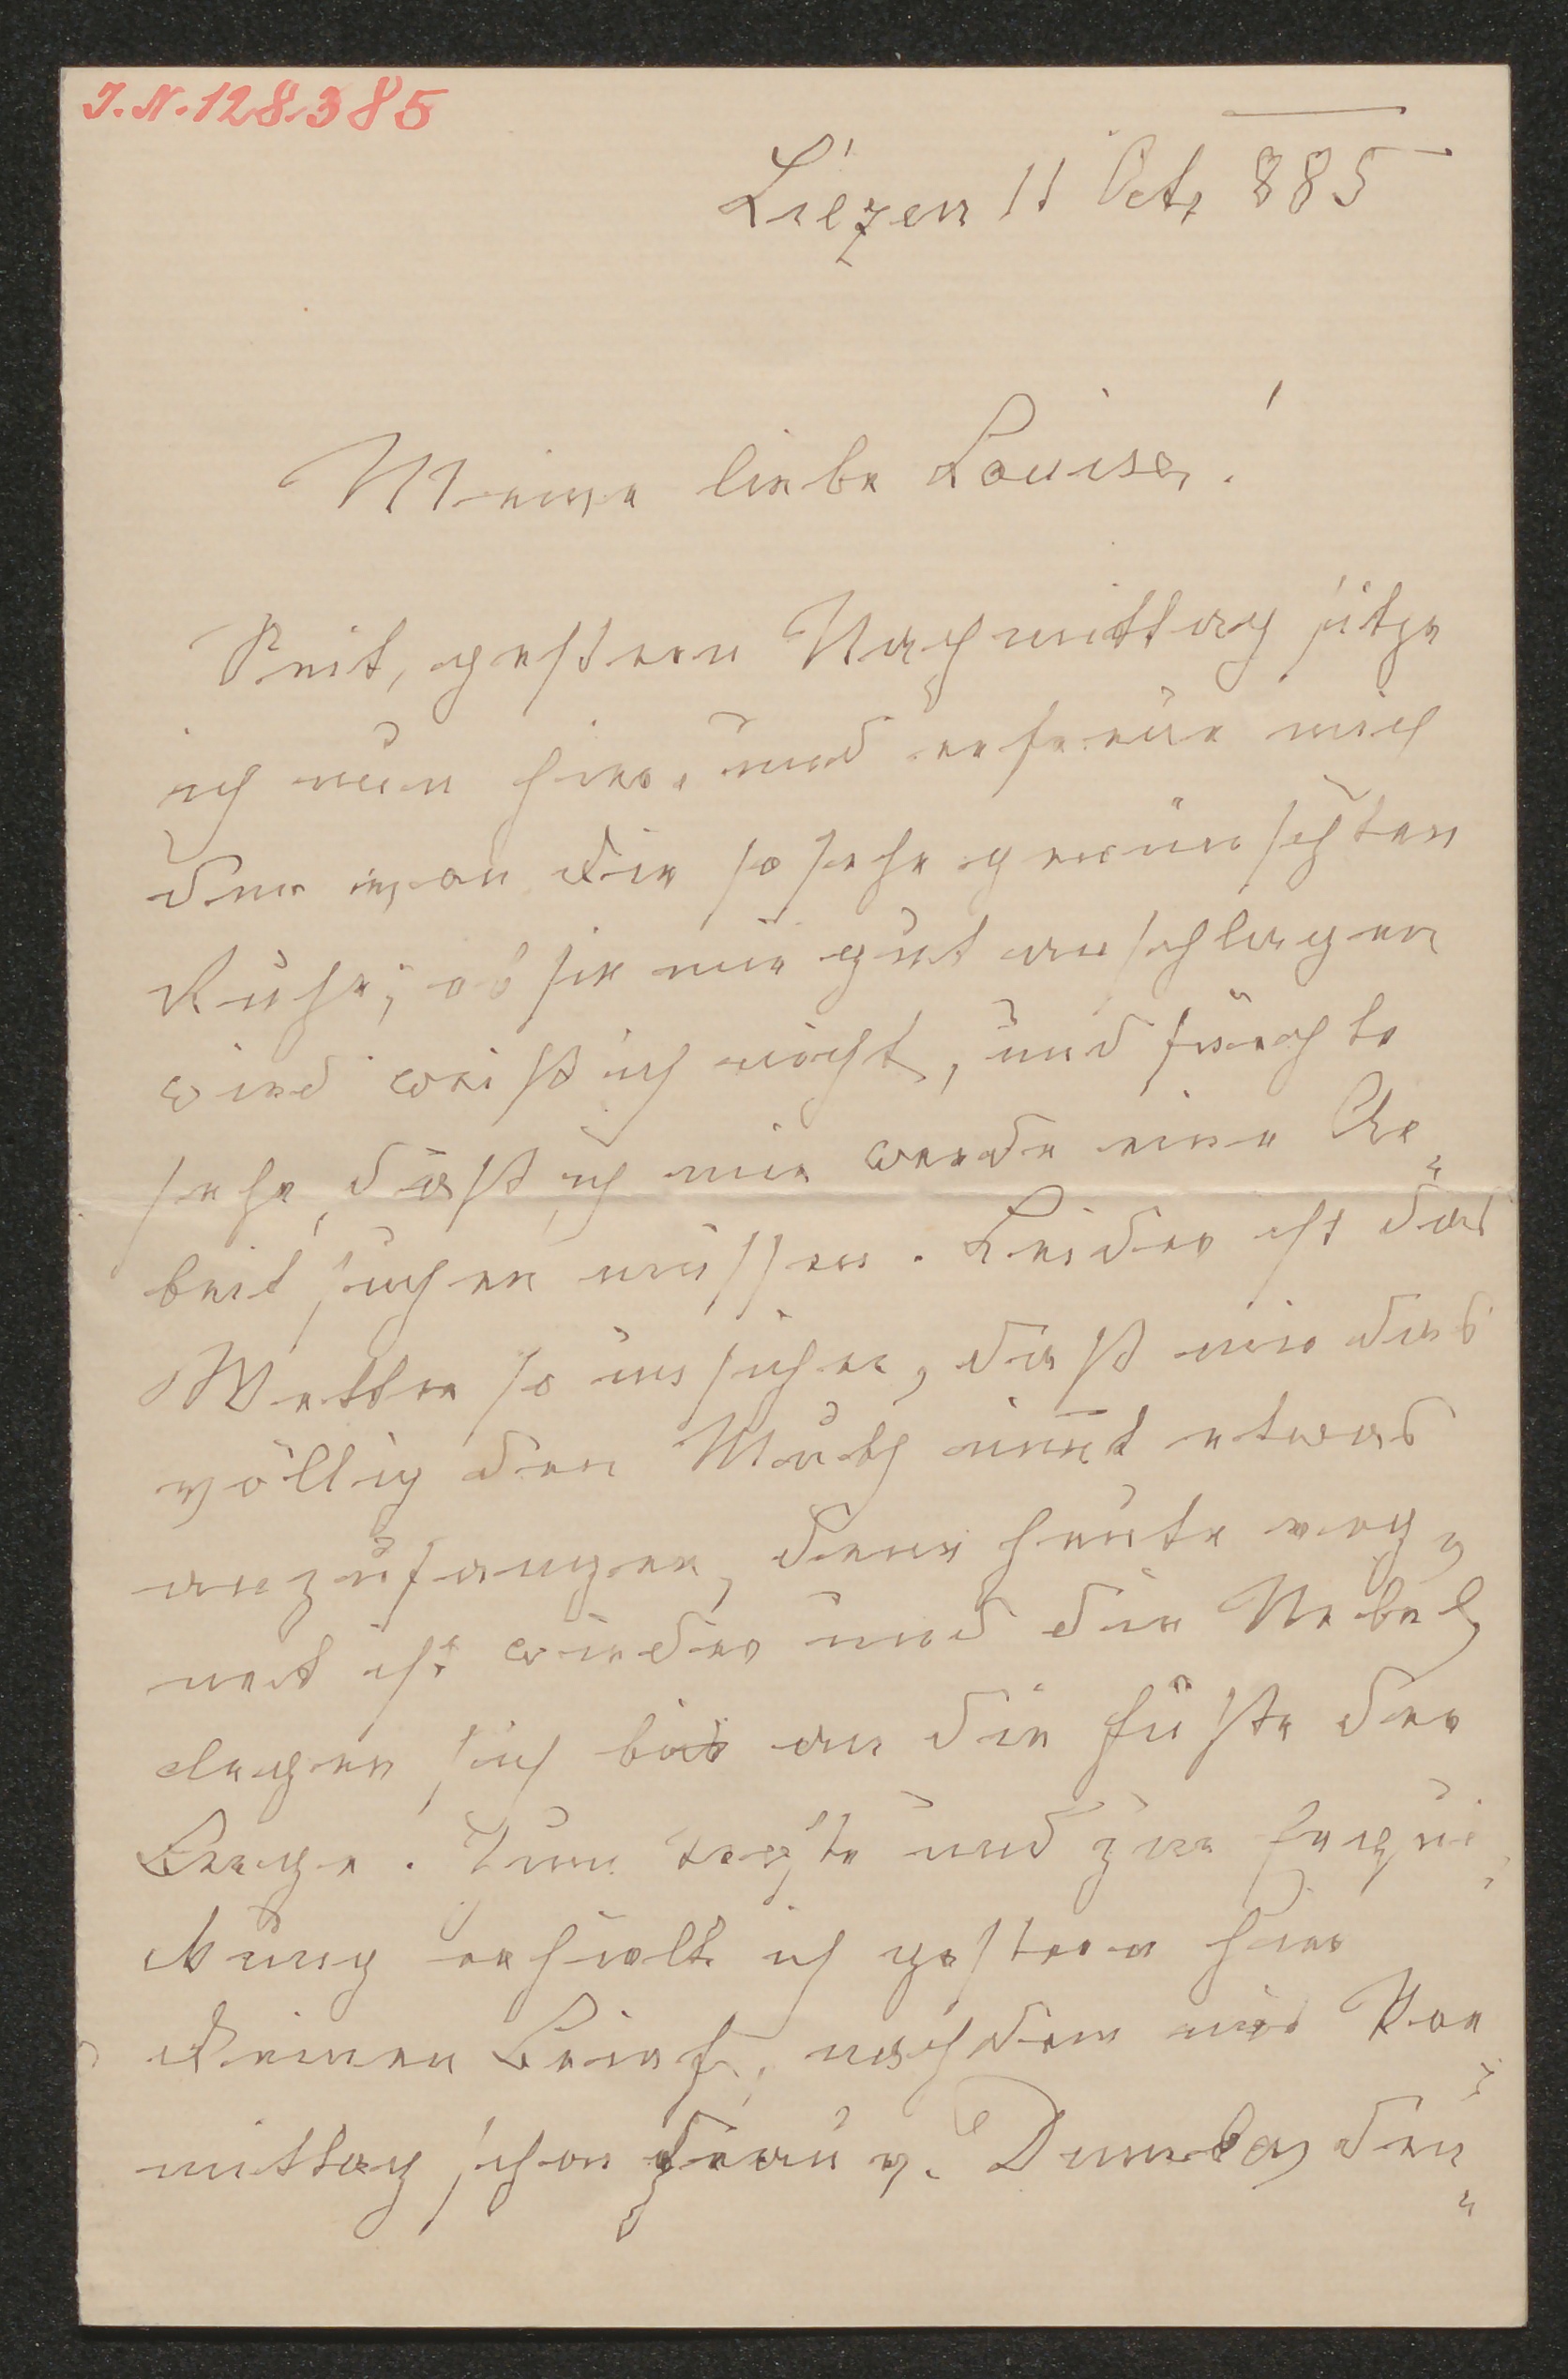 I.N.128385
Liezen 11 Oct, 885
Meine liebe Louise!
Seit, gestern Nachmittag sitze
ich nun hier, und erfreue mich
der von Dir so sehr gewünschten
Ruhe; ob sie mir gut anschlagen
wird weiß ich nicht, und fürchte
sehr, daß ich mir werde eine Ar„
beit suchen müssen. Leider ist das
Wetter so unsicher, daß mir das
völlig den Muth nimt etwas
anzufangen, denn heute reg„
net ist wieder und die Nebel
legen sich bis an die Füße der
Berge. Zum Troste und zur Erqui„
kung erhielt ich gestern hier
Deinen Brief, nachdem mir Vor„
mittag schon Frau v. Dumba den„